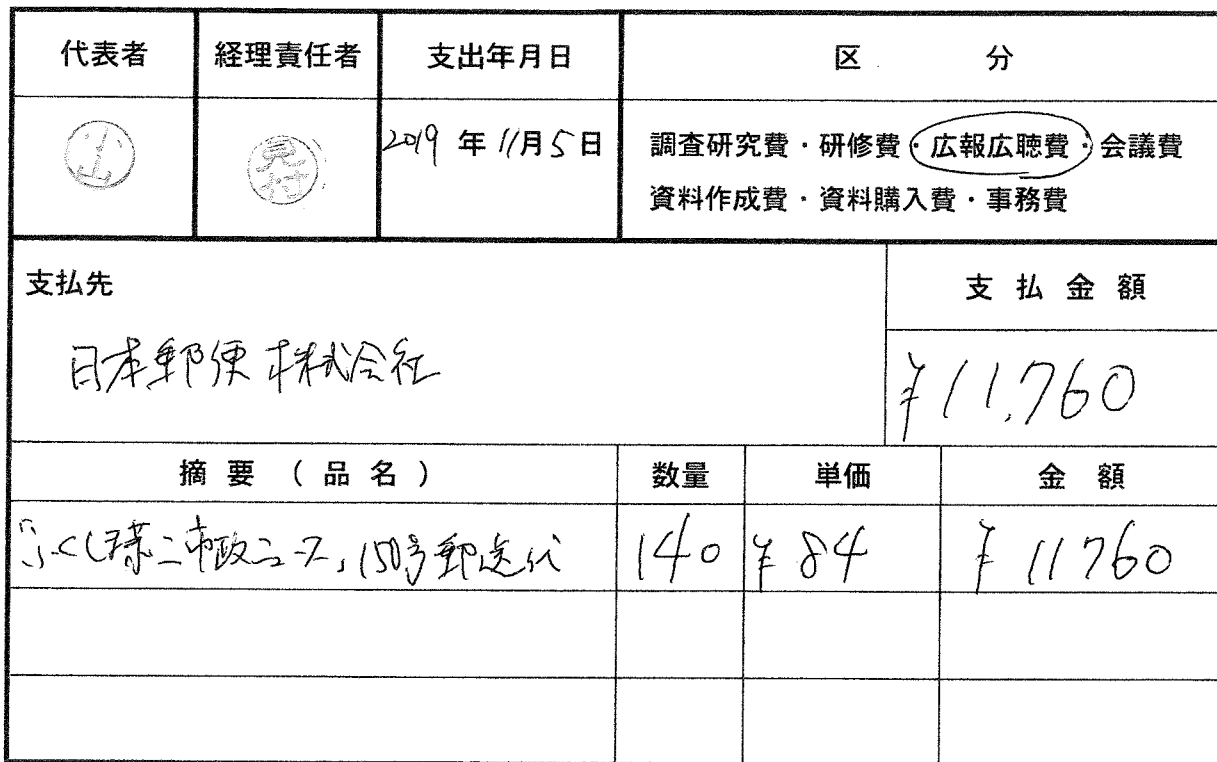 代表者 経理責任者 支出年月日 区 分
小山 見村 2019 年 11月 5日 調査研究費・研修費・広報広聴費・会議費
資料作成費・資料購入費・事務費
支払先 支 払 金 額
日本郵便株式会社 ¥11,760
摘 要 ( 品 名 ) 数量 単価 金 額
市政ニュース 150号郵送代 140 ¥84 ¥11760